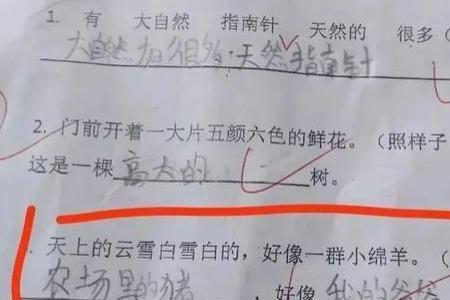 1. 有 大自然 指南针 天然的 很多（
大自然有很多天然指南针
2. 门前开着一大片五颜六色的鲜花。（照样子
这是一棵高大的树。
天上的云雪白雪白的，好像一群小绵羊。（
农场里的猪，好像我的爷爷